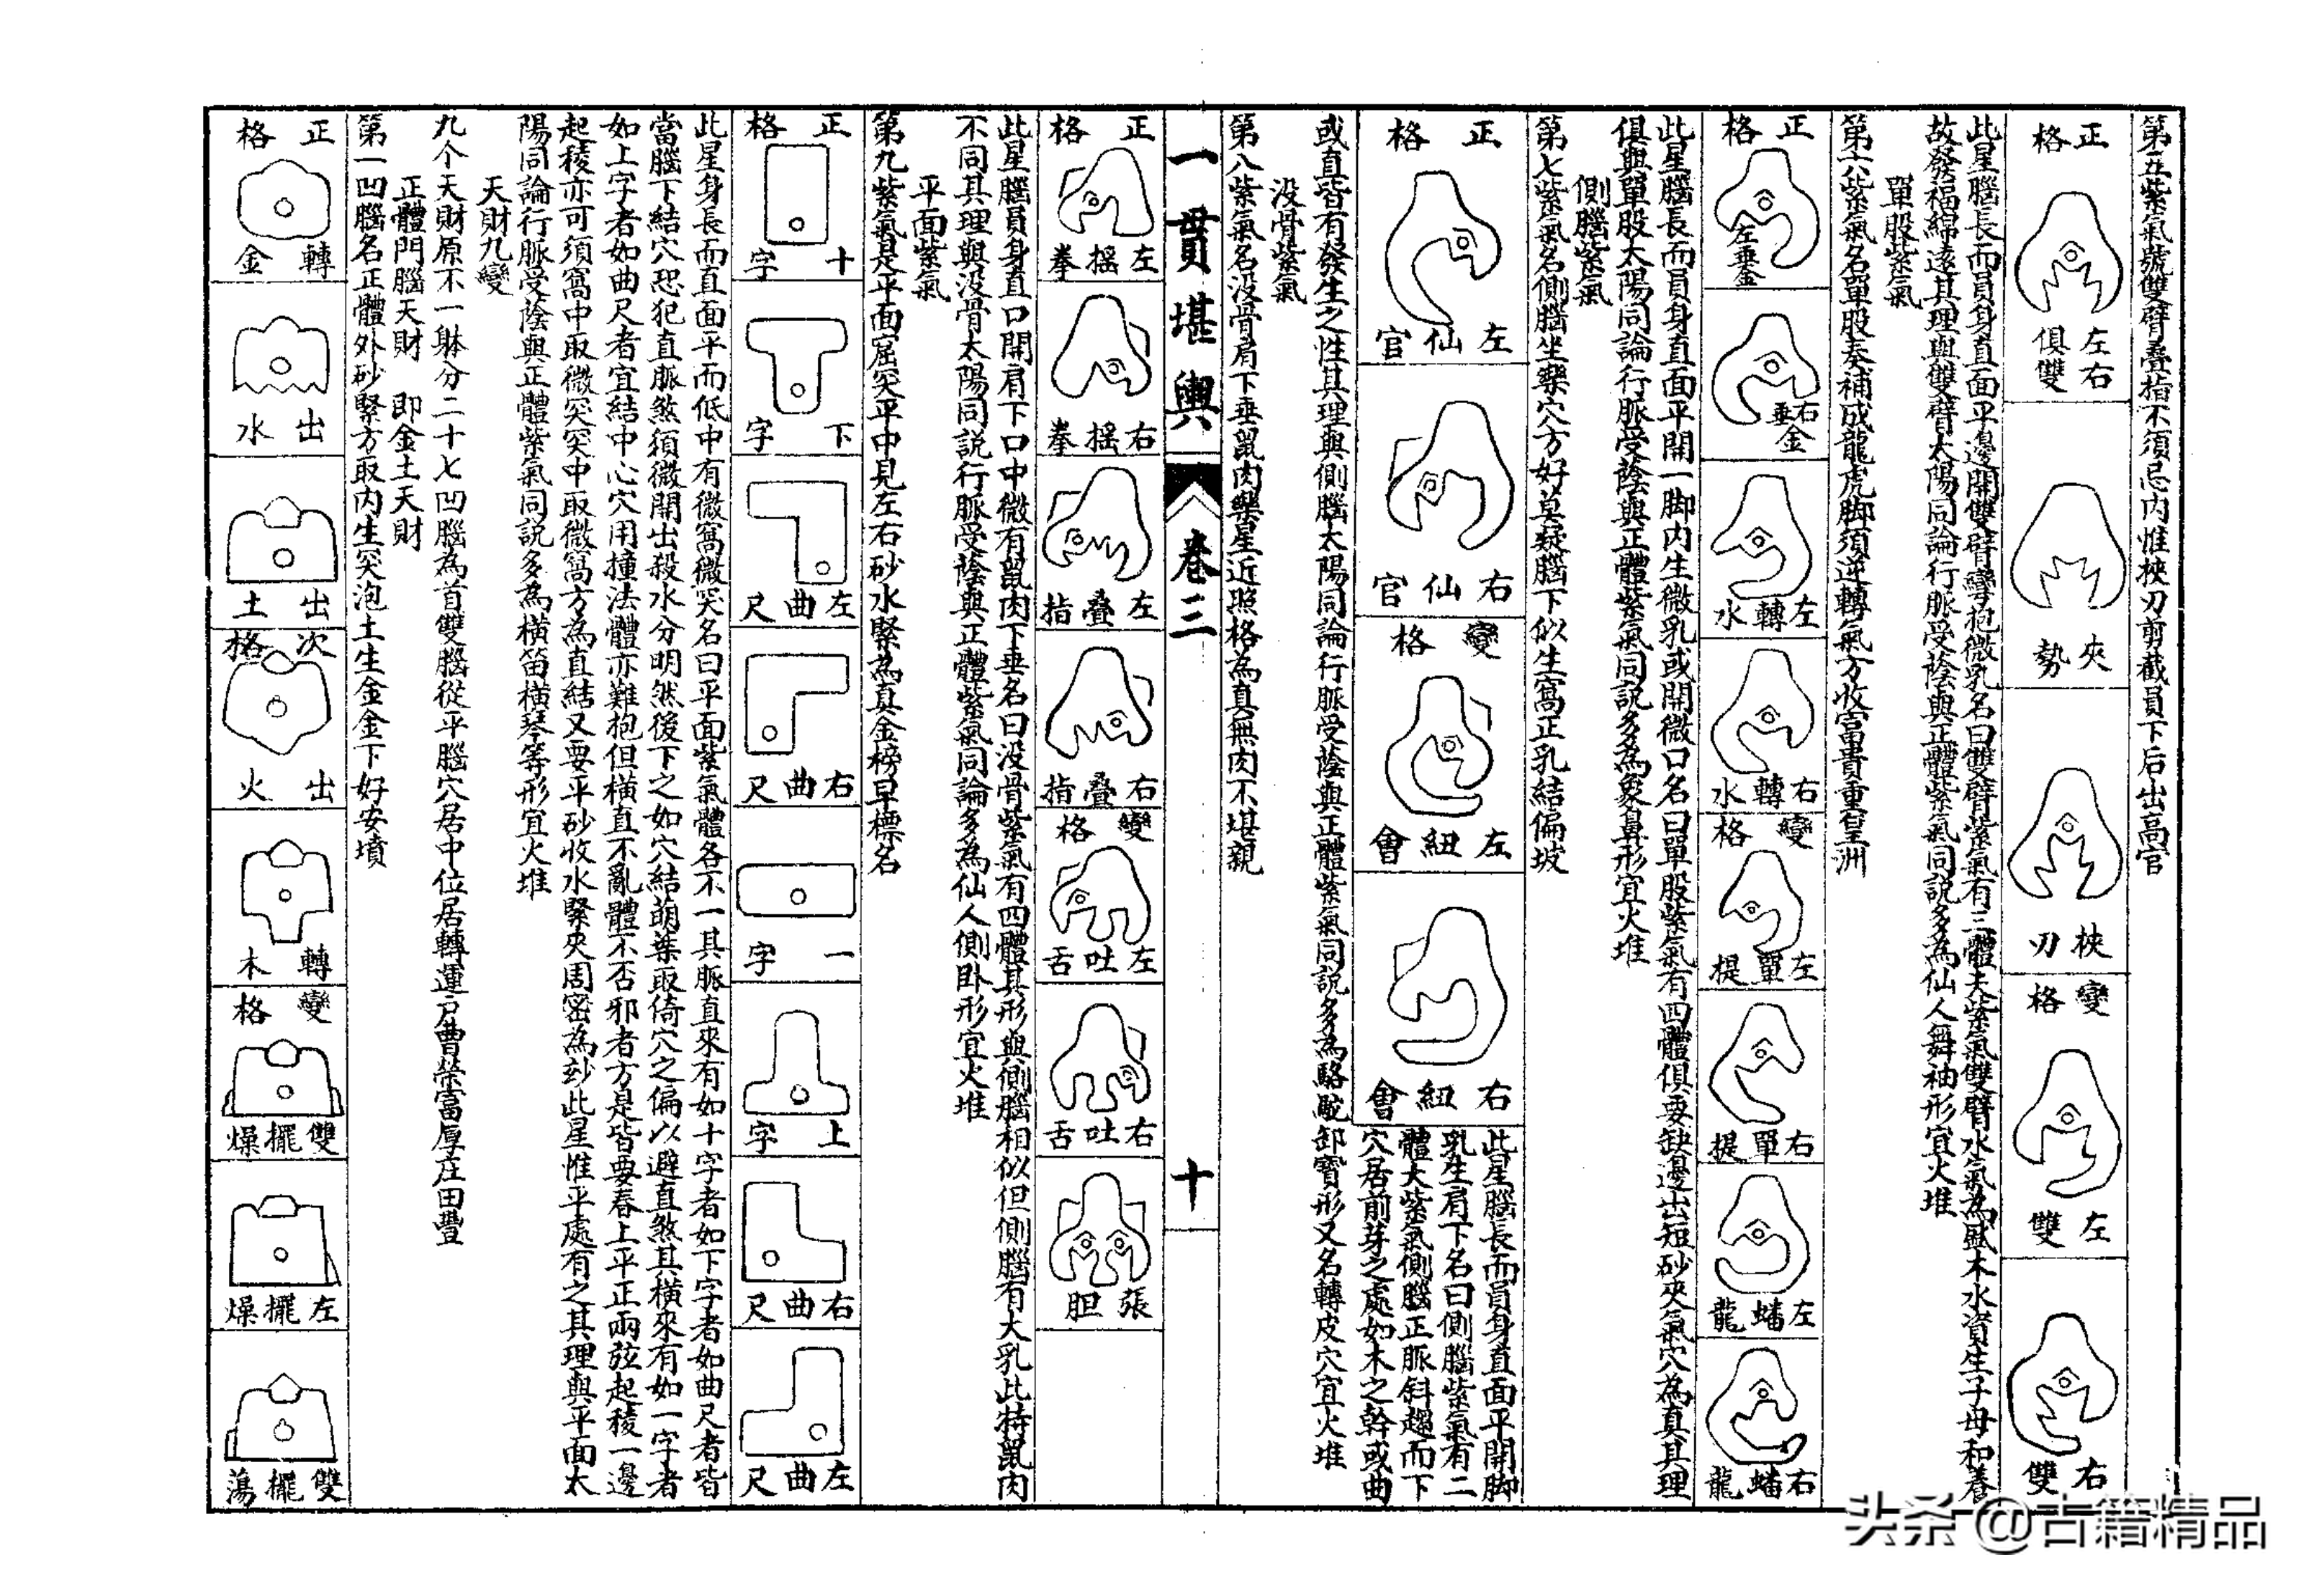 第五紫氣號雙臂疊指不須忌內惟挾刃剪截員下后出高官
正格
左右俱雙
夾勢
挾刃
變格
左雙
右雙
此星腦長而員身直面平邊開雙臂彎抱微乳名曰雙臂紫氣有三體夫紫氣雙臂水氣為盛木水資生子母和養
故發福綿遠其理與雙臂太陽同論行脈受蔭與正體紫氣同說多為仙人舞袖形宜火堆
單股紫氣
第六紫氣名單股奏補成龍虎脚須逆轉氣方收富貴重皇洲
正格
左垂金
右垂金
左轉水
右轉水
變格
左單提
右單提
左蟠龍
右蟠龍
此星腦長而員身直面平開一脚內生微乳或開微口名曰單股紫氣有四體俱要缺邊出短砂夾氣穴為真其理
俱與單股太陽同論行脈受蔭與正體紫氣同說多為象鼻形宜火堆
側腦紫氣
第七紫氣名側腦坐樂穴方好莫疑腦下似生窩正乳結偏坡
正格
左仙官
右仙官
變格
左紐會
右紐會
此星腦長而員身直面平開脚
乳生肩下名曰側腦紫氣有二
體大紫氣側腦正脈斜趨而下
穴居前芽之處如木之幹或曲
或直皆有發生之性其理與側腦太陽同論行脈受蔭與正體紫氣同說多為駱駝卸寶形又名轉皮穴宜火堆
沒骨紫氣
第八紫氣名沒骨肩下垂鼠肉樂星近照格為真無肉不堪親
一貫堪輿
卷三
十
正格
左搖拳
右搖拳
左疊指
右疊指
變格
左吐舌
右吐舌
張胆
此星腦員身直口開肩下口中微有鼠肉下垂名曰沒骨紫氣有四體其形與側腦相似但側腦有大乳此特鼠肉
不同其理與沒骨太陽同說行脈受蔭與正體紫氣同論多為仙人側卧形宜火堆
平面紫氣
第九紫氣是平面窟突平中見左右砂水緊為真金榜早標名
正格
十字
下字
左曲尺
右曲尺
一字
上字
右曲尺
左曲尺
此星身長而直面平而低中有微窩微突名曰平面紫氣體各不一其脈直來有如十字者如下字者如曲尺者皆
當腦下結穴恐犯直脈煞須微開出殺水分明然後下之如穴結萌葉取倚穴之偏以避直煞其橫來有如一字者
如上字者如曲尺者宜結中心穴用撞法體亦難抱但橫直不亂體不否邪者方是皆要春上平正兩弦起稜一邊
起稜亦可須窩中取微突突中取微窩方為直結又要平砂收水緊夾周密為玅此星惟平處有之其理與平面太
陽同論行脈受蔭與正體紫氣同說多為橫笛橫琴等形宜火堆
天財九變
九个天財原不一躰分二十七凹腦為首雙腦從平腦穴居中位居轉運戶曹榮富厚庄田豐
正體門腦天財　即金土天財
第一凹腦名正體外砂緊方取內生突泡土生金金下好安墳
正格
轉金
出水
出土
次格
出火
轉木
變格
雙擺燥
左擺燥
雙擺蕩
头条@古籍精品